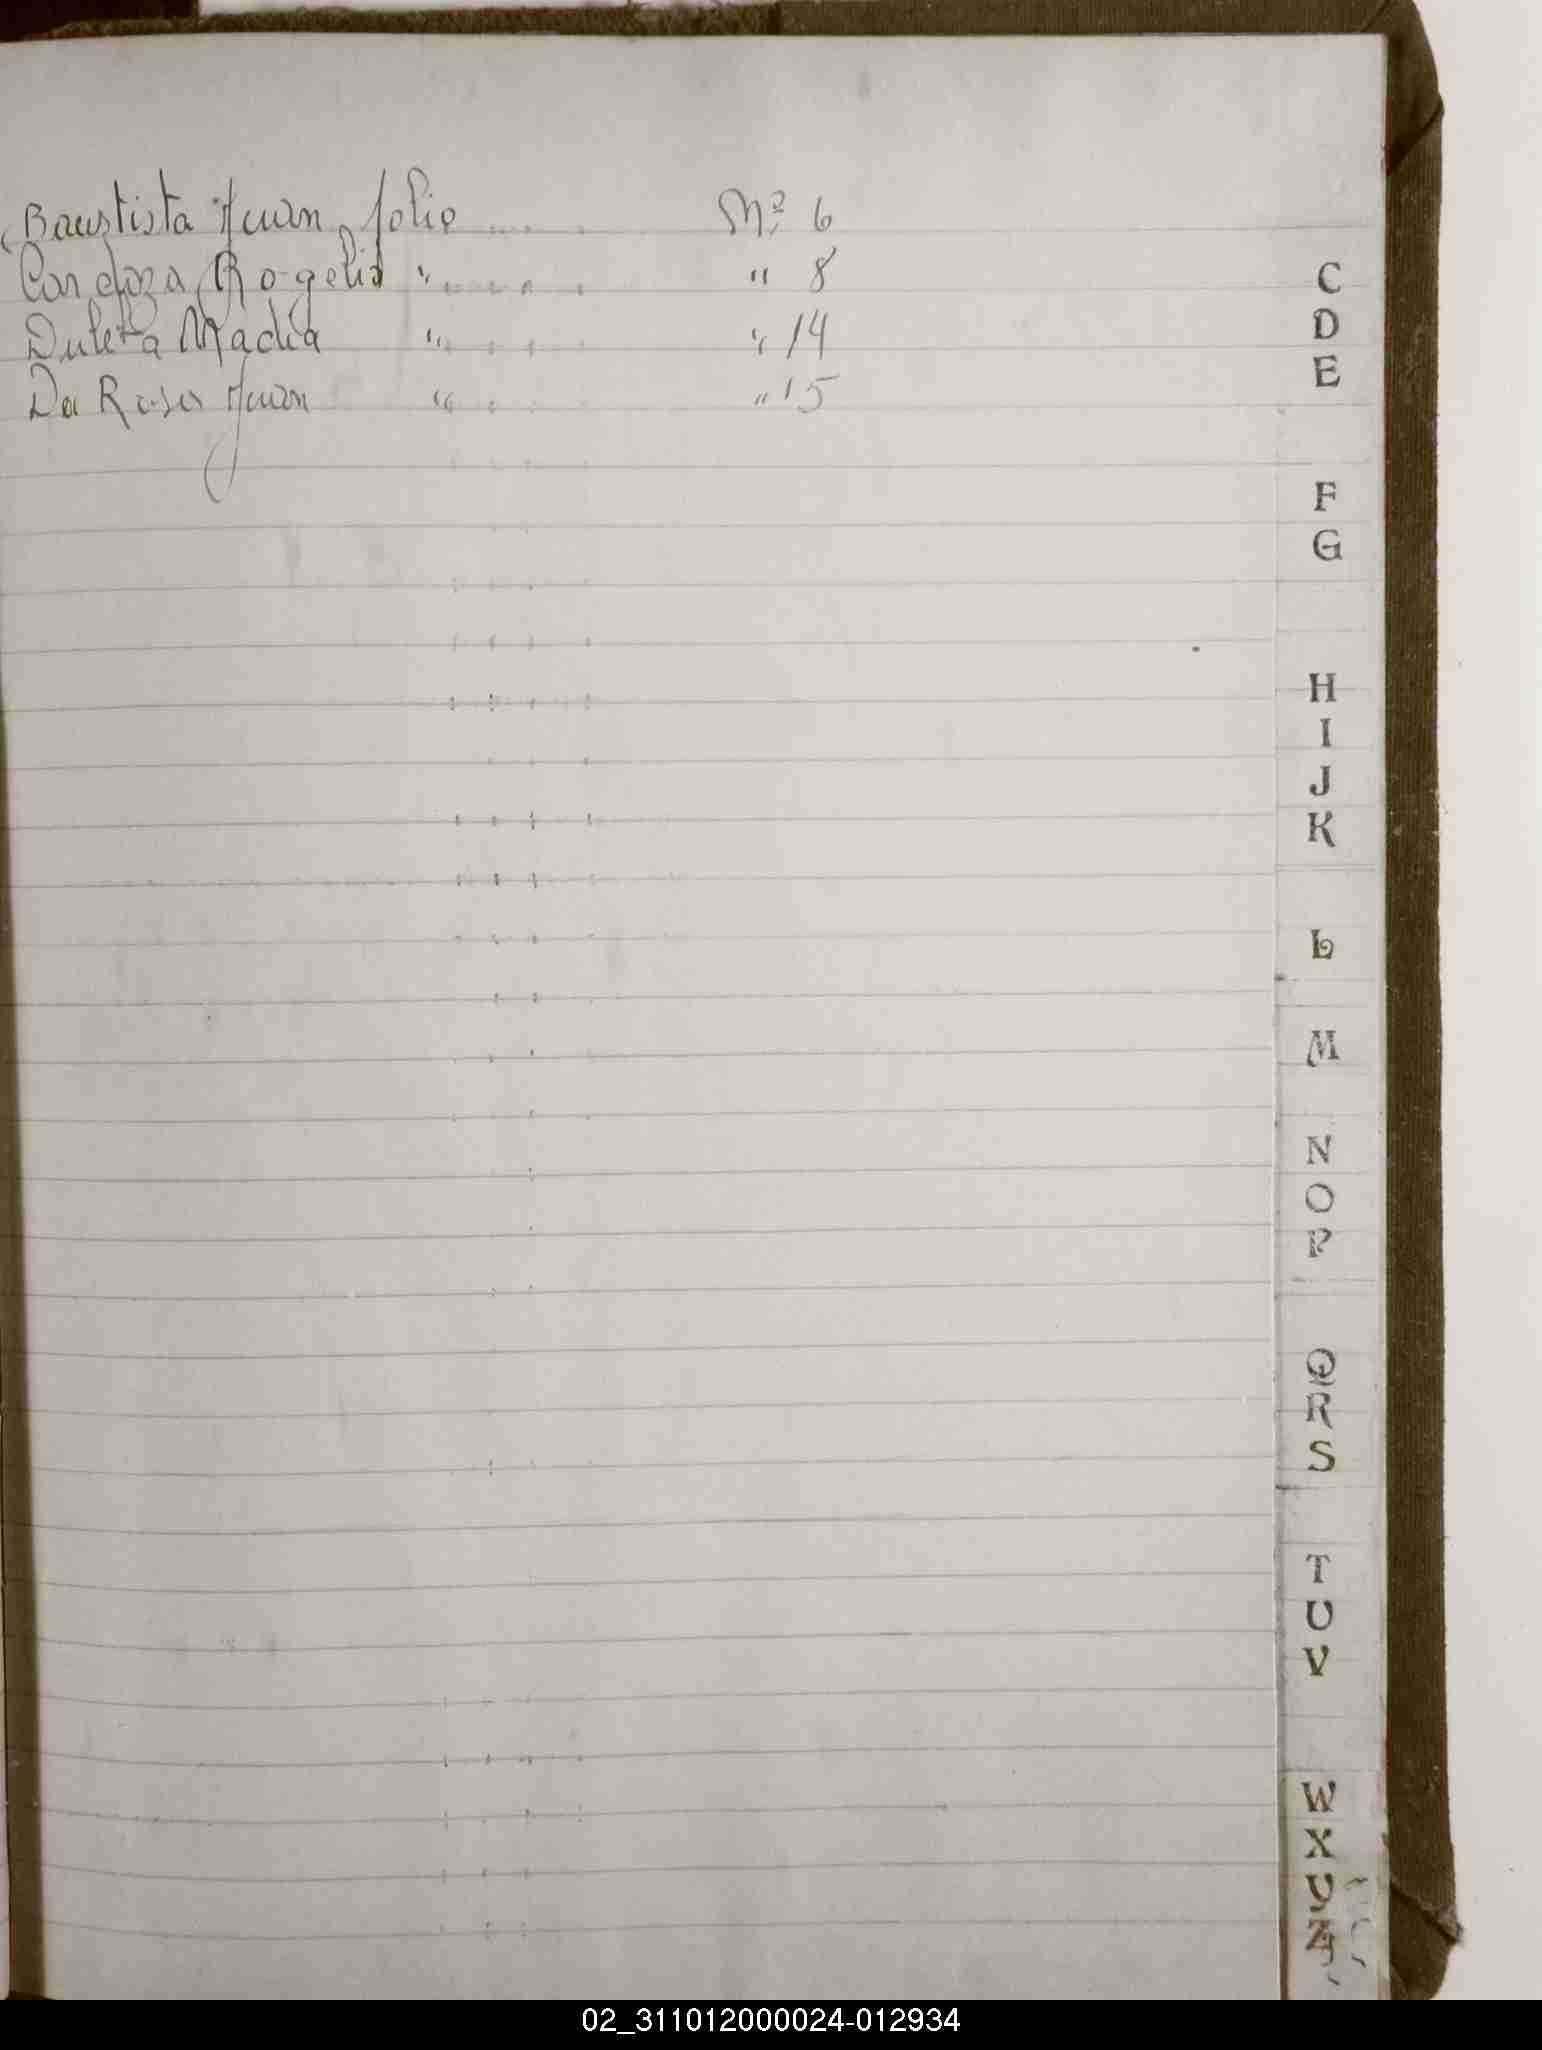 Bautista Juan folio Nº 6
Cardoza Rogelio " " 8
Duleta Madia " " 14
Da Rosa Juan " " 15
C
D
E
F
G
H
I
J
K
L
M
N
O
P
Q
R
S
T
U
V
W
X
Y
Z
02_311012000024-012934